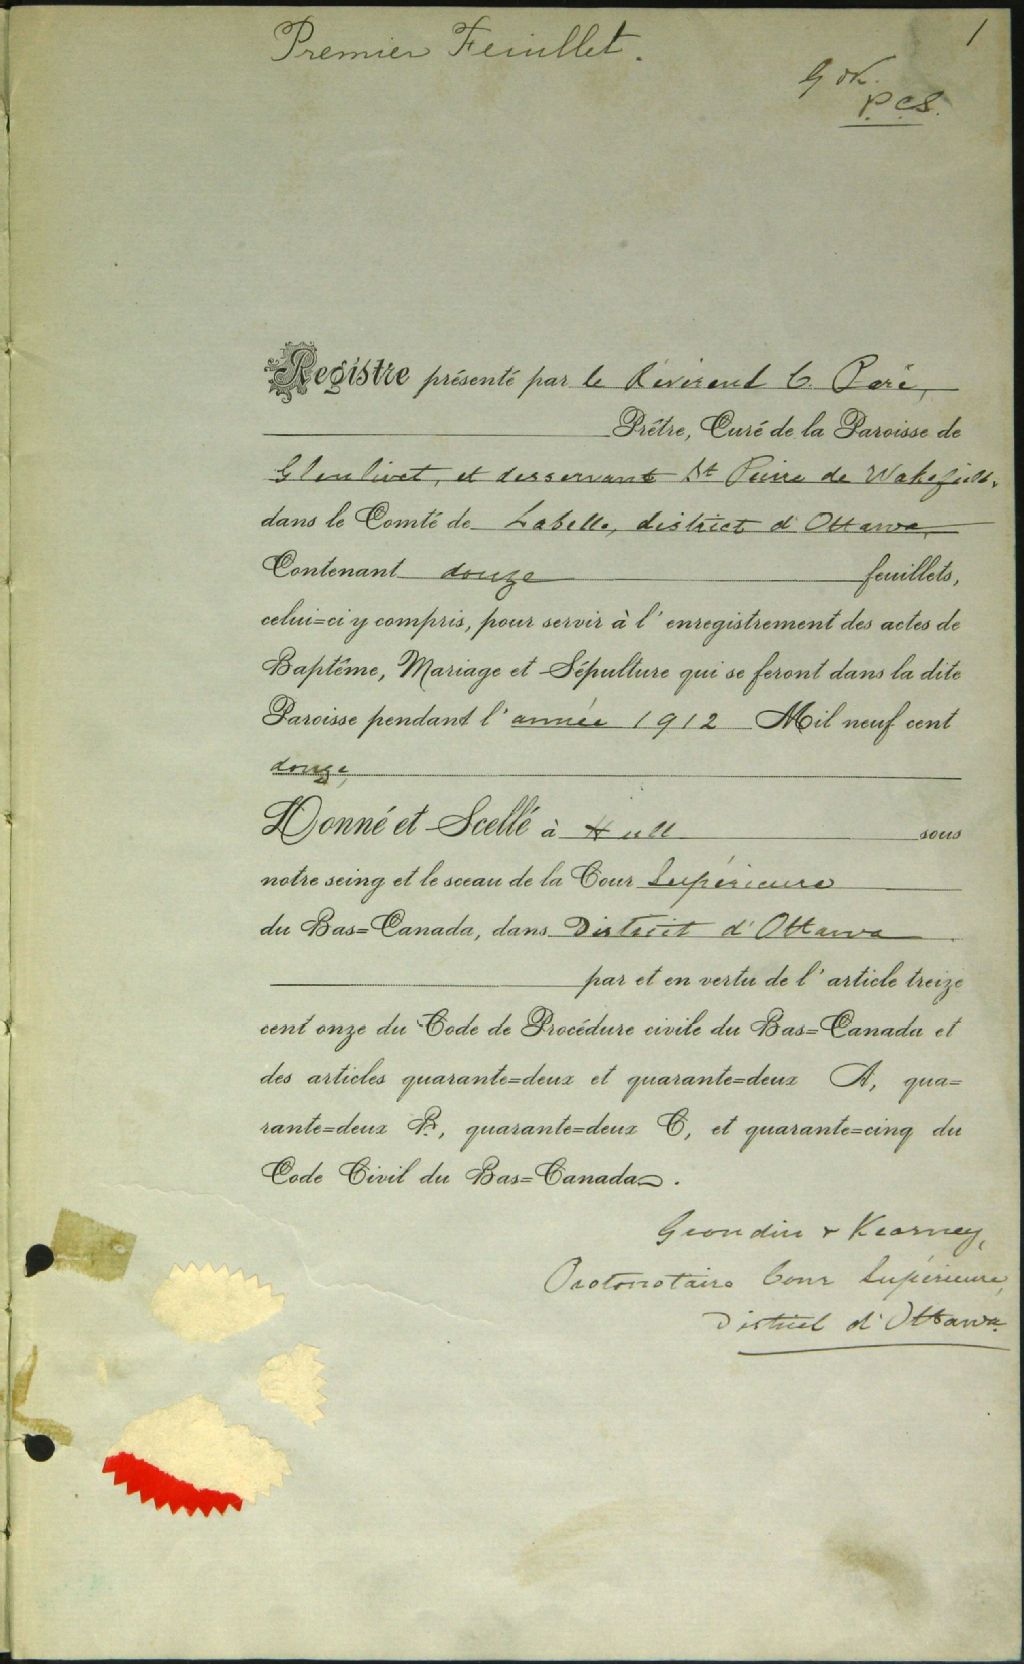 1
Premier Feuillet.
G & K.
P.C.S.
Registre présenté par le Révérend C. Paré,
Prêtre, Curé de la Paroisse de
Glenlivet, et desservant St Pierre de Wakefield,
dans le Comté de Labelle, district d'Ottawa,
Contenant douze feuillets,
celui=ci y compris, pour servir à l'enregistrement des actes de
Baptême, Mariage et Sépulture qui se feront dans la dite
Paroisse pendant l'année 1912 Mil neuf cent
douze,
Donné et Scellé à Hull sous
notre seing et le sceau de la Cour Supérieure
du Bas=Canada, dans District d'Ottawa
par et en vertu de l'article treize
cent onze du Code de Procédure civile du Bas=Canada et
des articles quarante=deux et quarante=deux A, qua=
rante=deux B, quarante=deux C, et quarante=cinq du
Code Civil du Bas=Canada.
Grondin & Kearney,
Protonotaire Cour Supérieure,
District d'Ottawa.